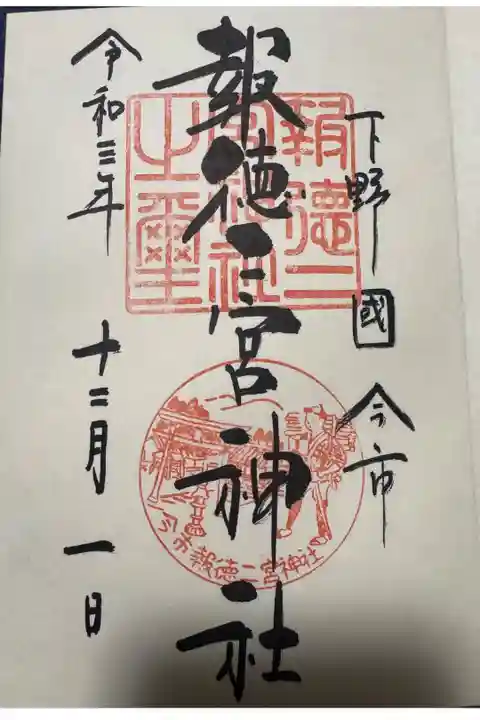 下野國 今市
報徳二宮神社
報徳二
宮神社
之璽
今市報徳二宮神社
令和三年 十二月 一日